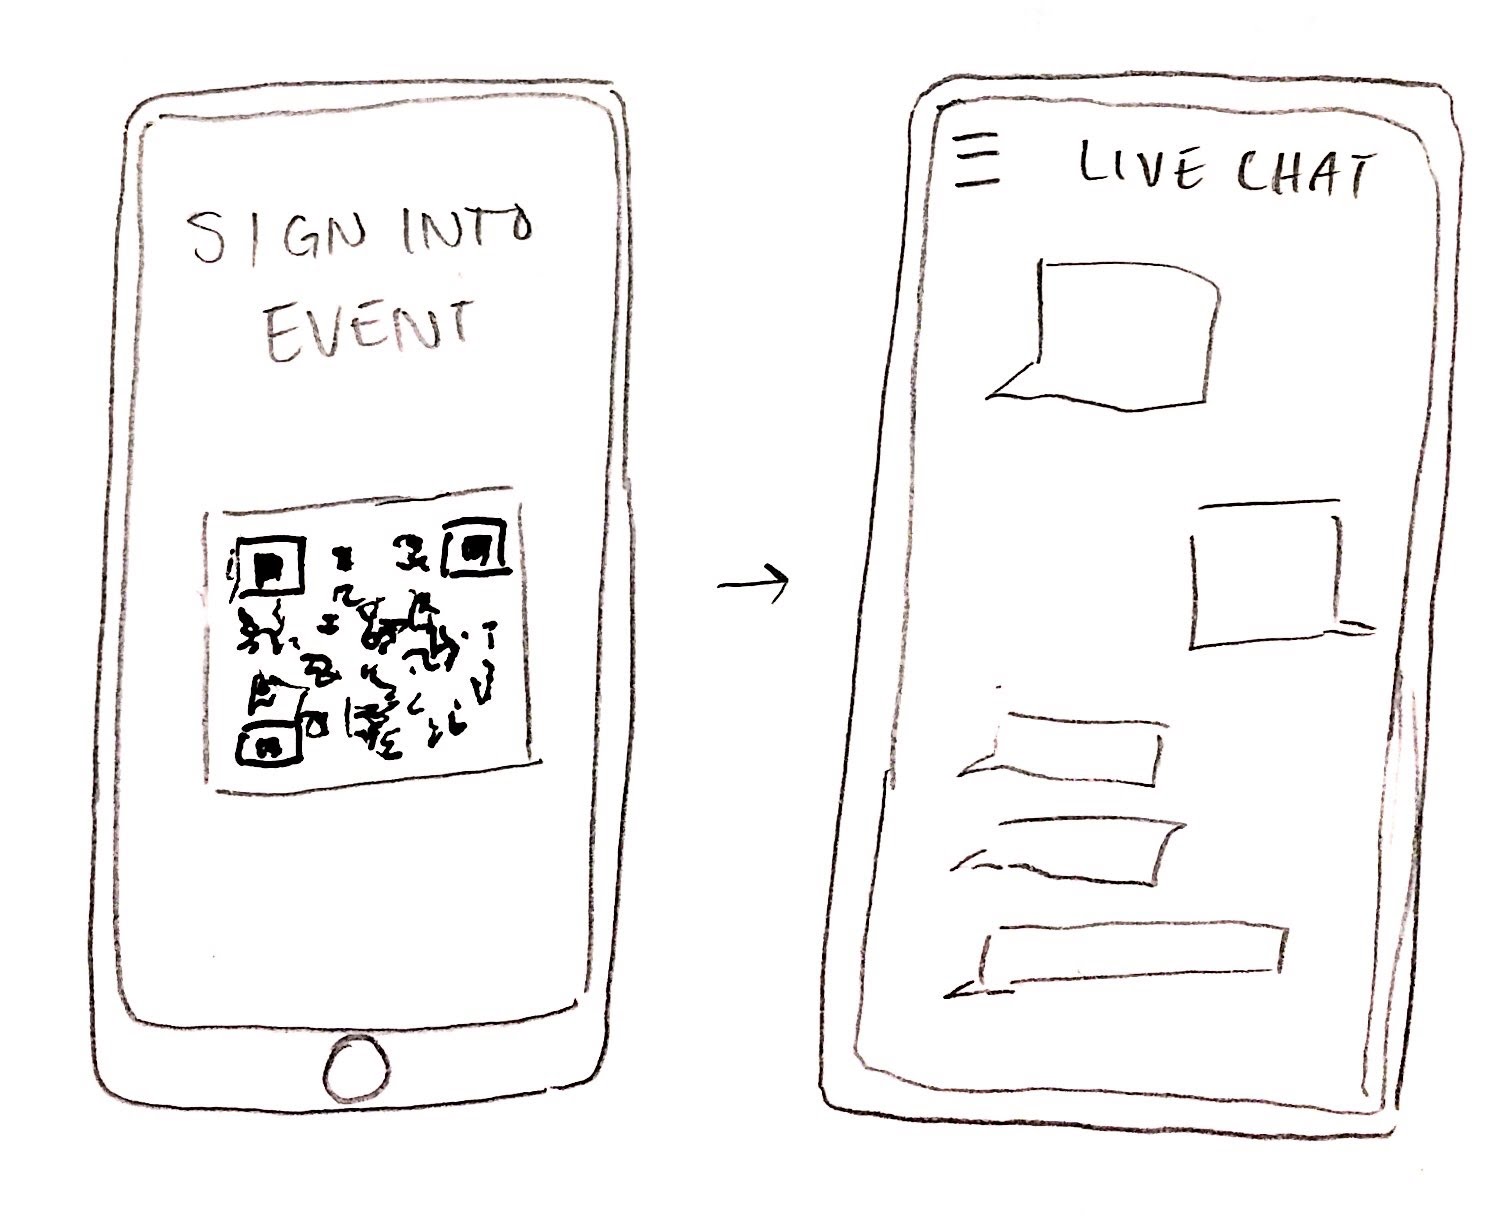 SIGN INTO
EVENT
LIVE CHAT